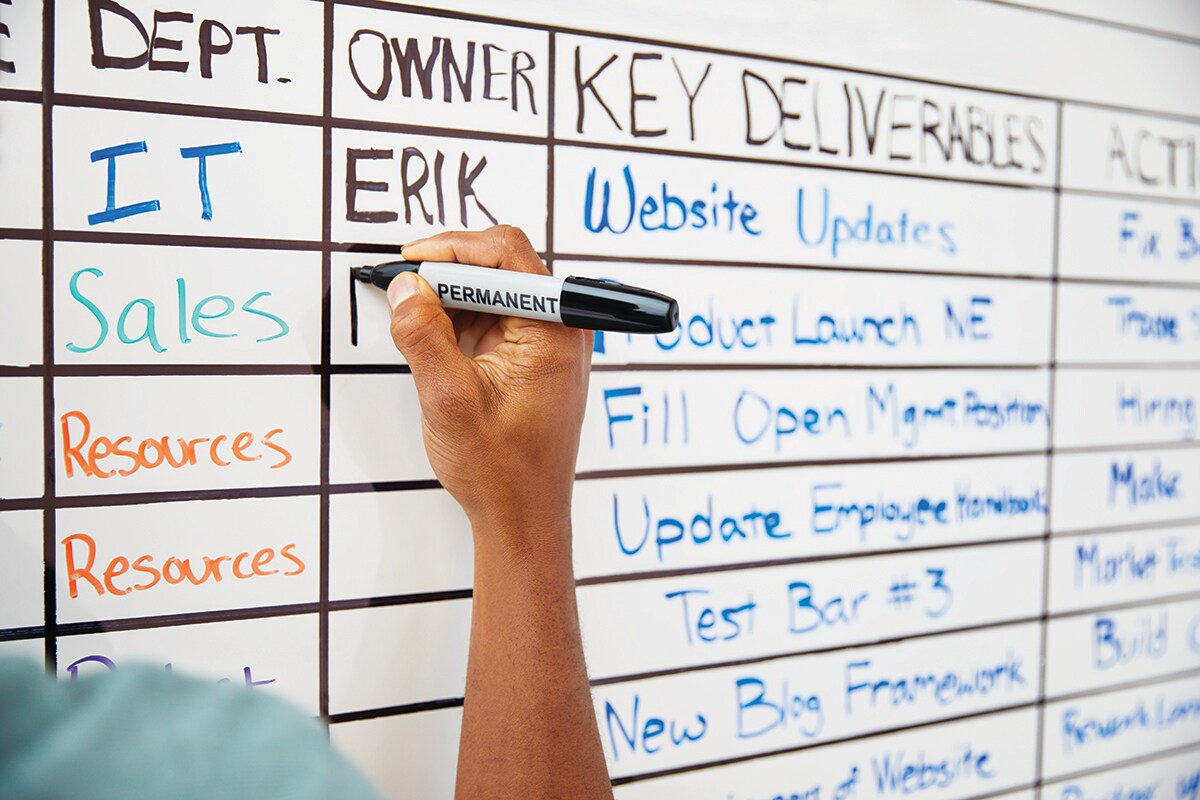 DEPT. OWNER KEY DELIVERABLES
IT ERIK Website Updates Fix
Sales Product Launch NE Trade
PERMANENT
Resources Fill Open Mgmt Position Hiring
Resources Update Employee Handbook Make
Test Bar #3 Market
New Blog Framework Build
of Website